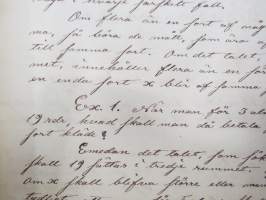 i hvarje särskilt fall.
Om flera än en sort af mått
ma, så böra de mått, som äro af
till samma sort. Om det talet,
met, innehåller flera än en sor
en enda sort x blir af samma
Ex. 1. När man för 3 aln
19 rdr, hvad skall man då betala
sort kläde?
Emedan det talet, som sök
skall 19 sättas i tredje rummet.
om x skall blifva större eller min